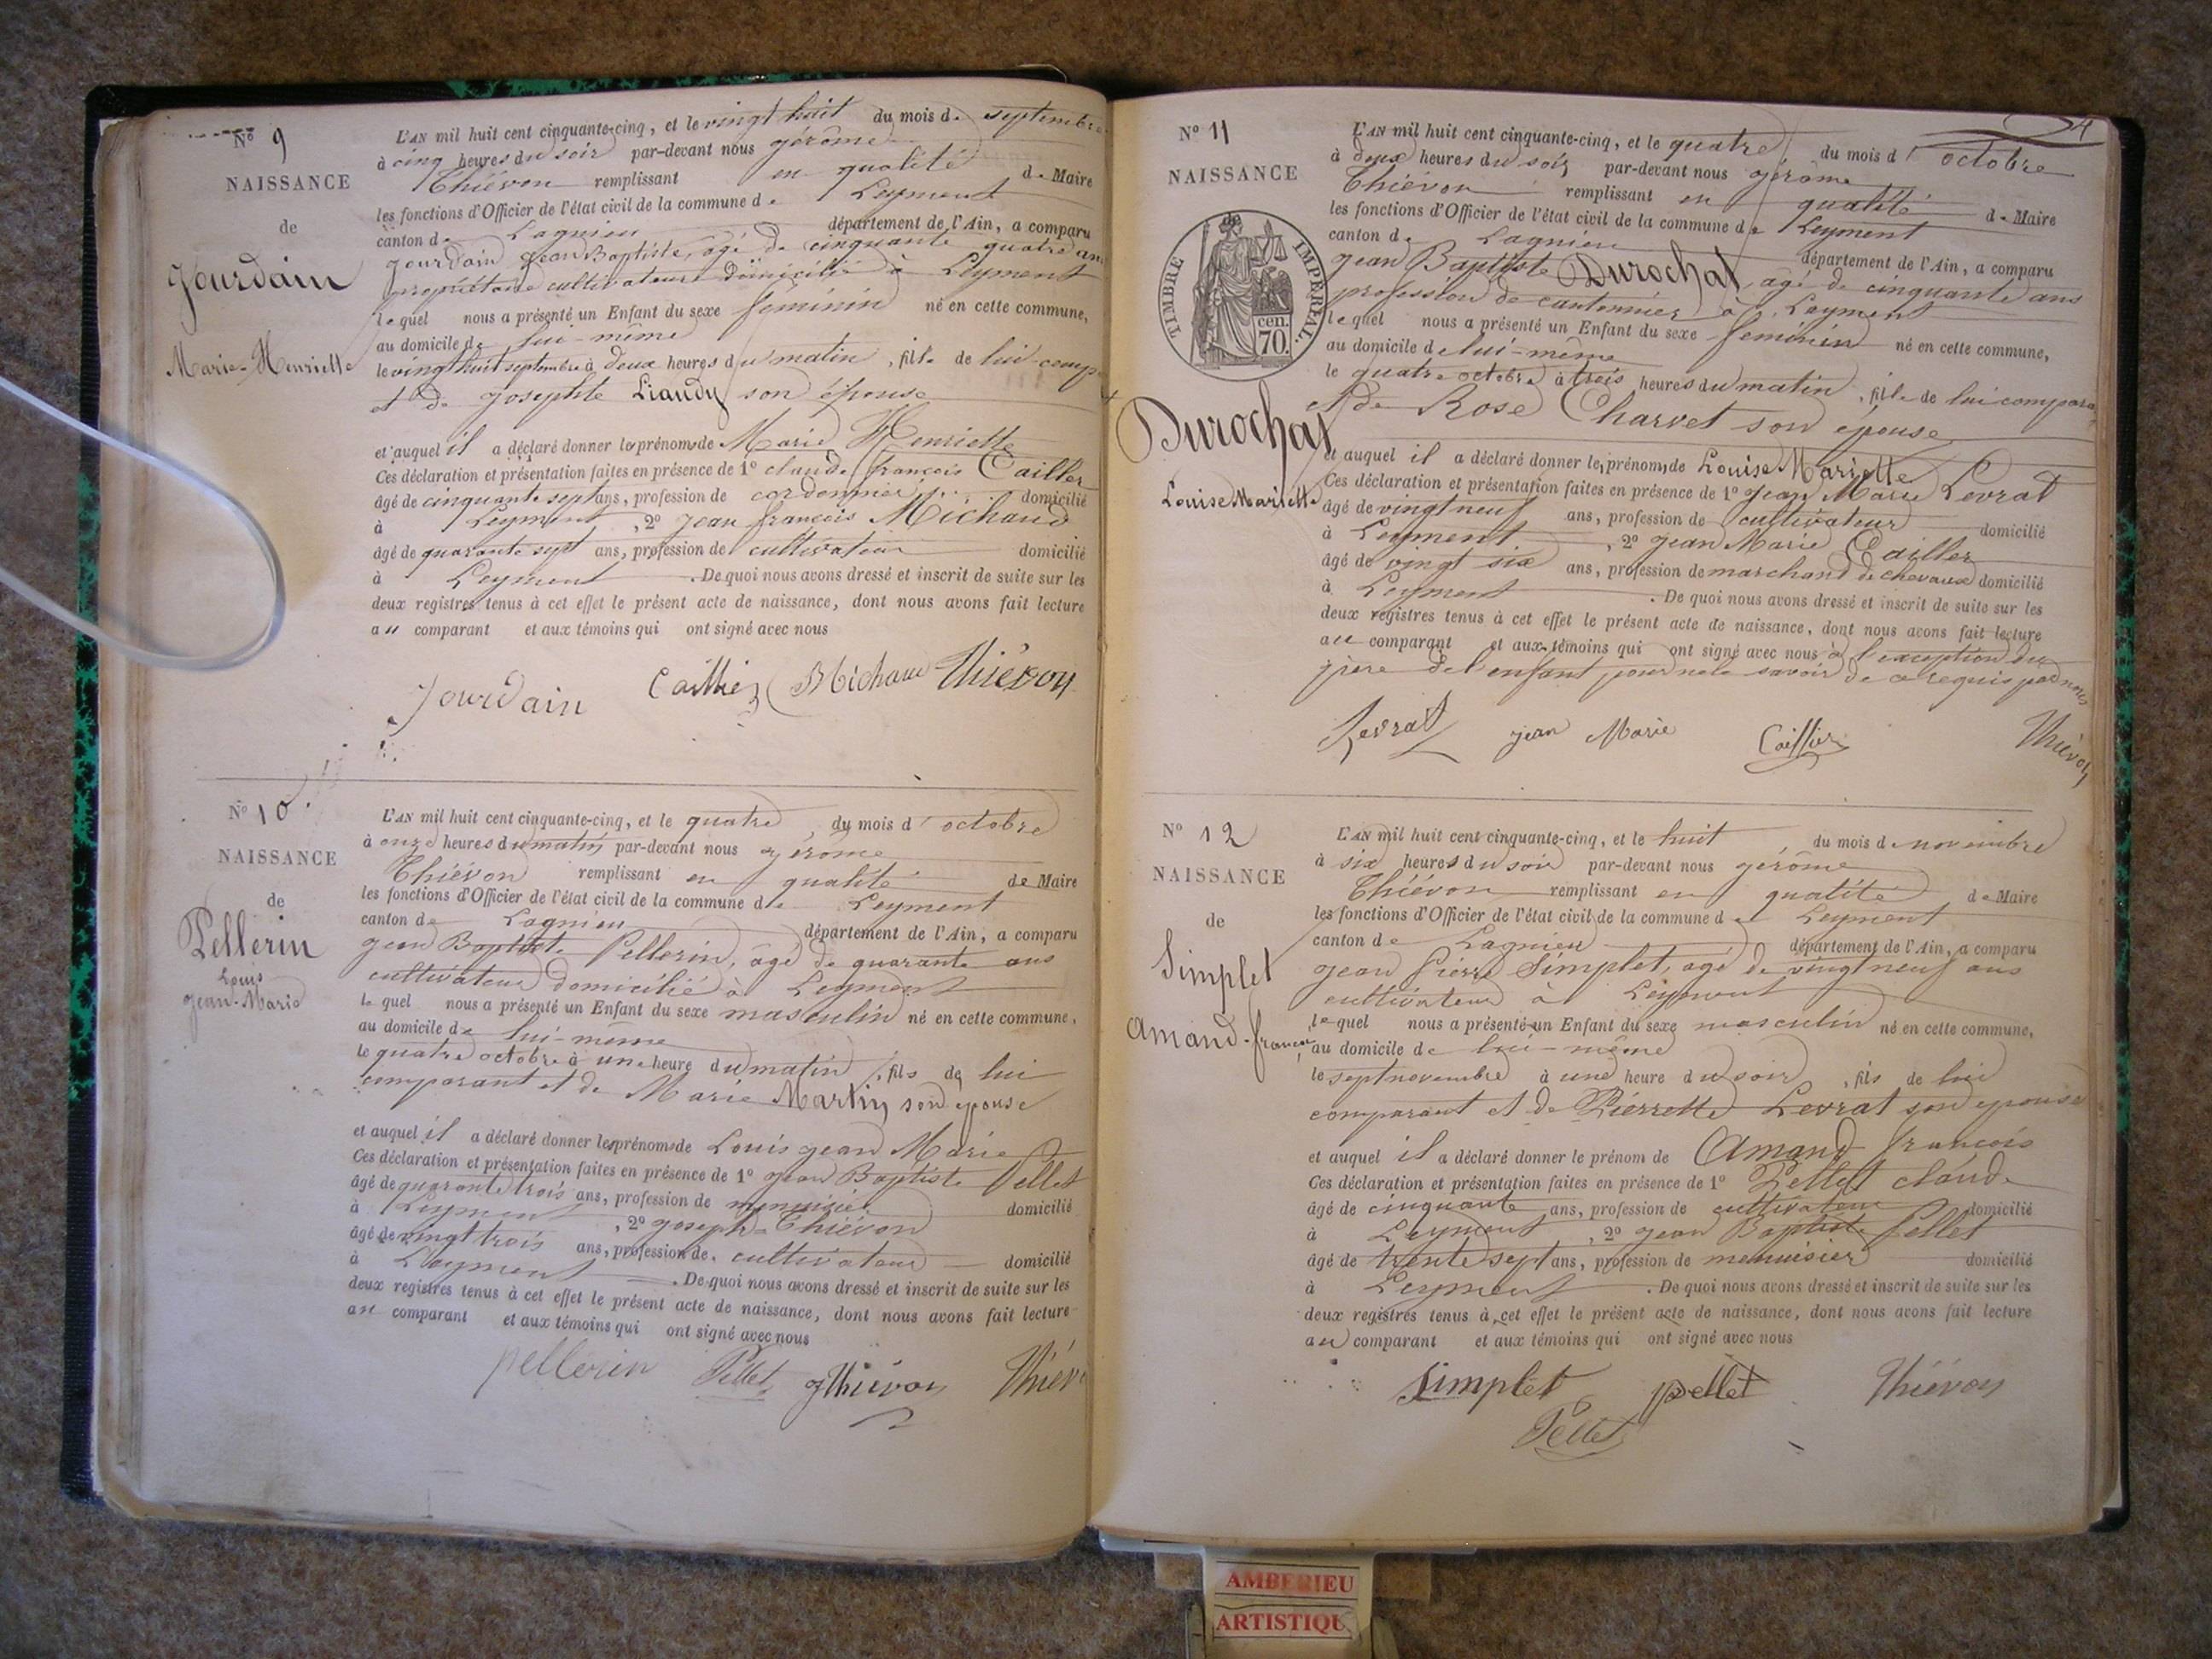 N° 9
NAISSANCE
de
Jourdain
Marie-Henriette
L'AN mil huit cent cinquante-cinq, et le vingt huit du mois de septembre
à cinq heures du soir par-devant nous gérôme
Thiévon remplissant en qualité de Maire
les fonctions d'Officier de l'état civil de la commune de Leyment
canton de Lagnieu département de l'Ain, a comparu
Jourdain Jean Baptiste, âgé de cinquante quatre ans
propriétaire cultivateur domicilié à Leyment
lequel nous a présenté un Enfant du sexe féminin né en cette commune,
au domicile de lui-même
le vingt huit septembre à deux heures du matin, fille de lui comp
et de Josephte Liaudy son épouse
et auquel il a déclaré donner les prénoms de Marie Henriette
Ces déclaration et présentation faites en présence de 1° claude françois Cailler
âgé de cinquante sept ans, profession de cordonnier domicilié
à Leyment, 2° Jean françois Michaud
âgé de quarante sept ans, profession de cultivateur domicilié
à Leyment. De quoi nous avons dressé et inscrit de suite sur les
deux registres tenus à cet effet le présent acte de naissance, dont nous avons fait lecture
au comparant et aux témoins qui ont signé avec nous
Jourdain Caillier Michaud Thiévon
N° 10
NAISSANCE
de
Pellerin
Louis
Jean-Marie
L'AN mil huit cent cinquante-cinq, et le quatre du mois d'octobre
à onze heures du matin par-devant nous gérôme
Thiévon remplissant en qualité de Maire
les fonctions d'Officier de l'état civil de la commune de Leyment
canton de Lagnieu département de l'Ain, a comparu
Jean Baptiste Pellerin, âgé de quarante ans
cultivateur domicilié à Leyment
lequel nous a présenté un Enfant du sexe masculin né en cette commune,
au domicile de lui-même
le quatre octobre à une heure du matin, fils de lui
comparant et de Marie Martin son épouse
et auquel il a déclaré donner les prénoms de Louis Jean Marie
Ces déclaration et présentation faites en présence de 1° Jean Baptiste Pellet
âgé de quarante trois ans, profession de menuisier domicilié
à Leyment, 2° Joseph Thiévon
âgé de vingt trois ans, profession de cultivateur domicilié
à Leyment. De quoi nous avons dressé et inscrit de suite sur les
deux registres tenus à cet effet le présent acte de naissance, dont nous avons fait lecture
au comparant et aux témoins qui ont signé avec nous
pellerin Pellet JThiévon Thiév
34
N° 11
NAISSANCE
de
TIMBRE IMPÉRIAL.
cen.
70.
Durochat
Louise Mariette
L'AN mil huit cent cinquante-cinq, et le quatre du mois d'octobre
à deux heures du soir par-devant nous gérôme
Thiévon remplissant en qualité de Maire
les fonctions d'Officier de l'état civil de la commune de Leyment
canton de Lagnieu département de l'Ain, a comparu
Jean Baptiste Durochat, âgé de cinquante ans
profession de cantonnier à Leyment
lequel nous a présenté un Enfant du sexe féminin né en cette commune,
au domicile de lui-même
le quatre octobre à trois heures du matin, fille de lui compara
et de Rose Charvet son épouse
et auquel il a déclaré donner les prénoms de Louise Mariette
Ces déclaration et présentation faites en présence de 1° Jean Marie Levrat
âgé de vingt neuf ans, profession de cultivateur domicilié
à Leyment, 2° Jean Marie Cailler
âgé de vingt six ans, profession de marchand de chevaux domicilié
à Leyment. De quoi nous avons dressé et inscrit de suite sur les
deux registres tenus à cet effet le présent acte de naissance, dont nous avons fait lecture
au comparant et aux témoins qui ont signé avec nous à l'exception du
père de l'enfant pour ne le savoir de ce requis par nous
Levrat jean Marie Caillier Thiévon
N° 12
NAISSANCE
de
Simplet
Amand-françois
L'AN mil huit cent cinquante-cinq, et le huit du mois de novembre
à six heures du soir par-devant nous gérôme
Thiévon remplissant en qualité de Maire
les fonctions d'Officier de l'état civil de la commune de Leyment
canton de Lagnieu département de l'Ain, a comparu
Jean Pierre Simplet, âgé de vingt neuf ans
cultivateur à Leyment
lequel nous a présenté un Enfant du sexe masculin né en cette commune,
au domicile de lui-même
le sept novembre à une heure du soir, fils de lui
comparant et de Pierrette Levrat son épouse
et auquel il a déclaré donner le prénom de Amand françois
Ces déclaration et présentation faites en présence de 1° Pellet claude
âgé de cinquante ans, profession de cultivateur domicilié
à Leyment, 2° Jean Baptiste Pellet
âgé de trente sept ans, profession de menuisier domicilié
à Leyment. De quoi nous avons dressé et inscrit de suite sur les
deux registres tenus à cet effet le présent acte de naissance, dont nous avons fait lecture
au comparant et aux témoins qui ont signé avec nous
Simplet pellet Thiévon
Pellet
AMBERIEU
ARTISTIQU